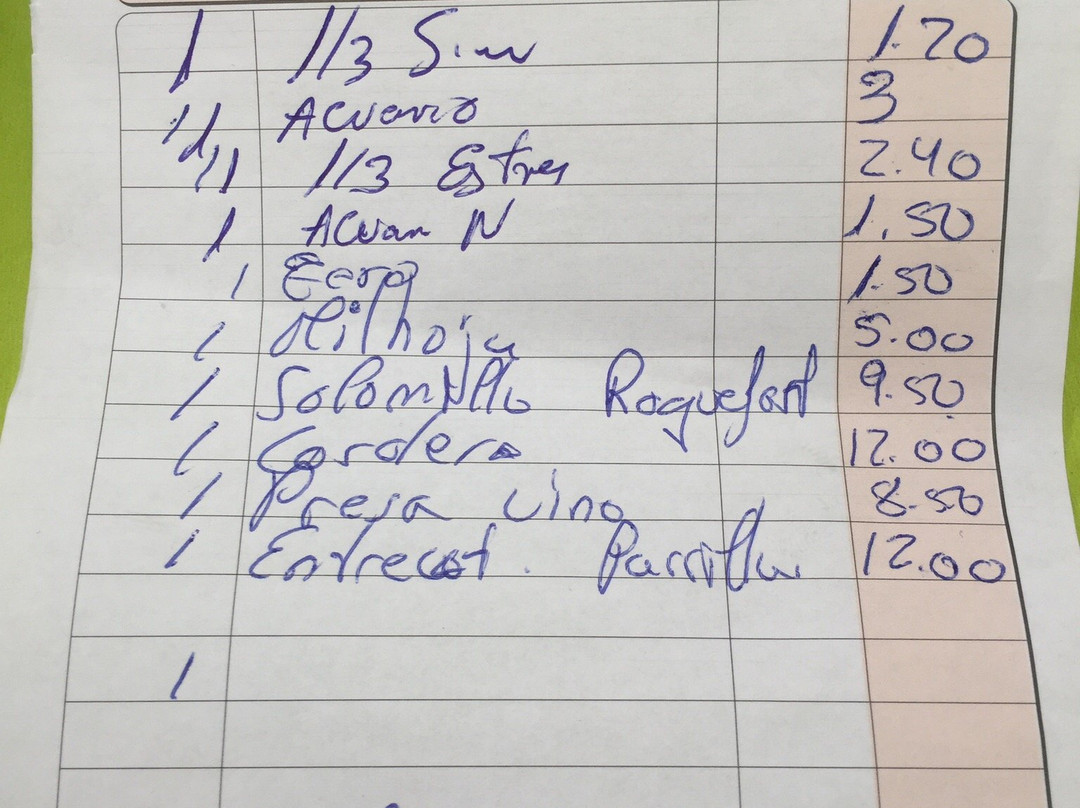 1 1/3 Sin 1.20
11 Acuario 3
11 1/3 Estre 2.40
1 Acuar N 1.50
1 1.50
1 Milhoja 5.00
1 Solomillo Roquefort 9.50
1 Cordero 12.00
1 Presa Vino 8.50
1 Entrecot. Parrilla 12.00
1